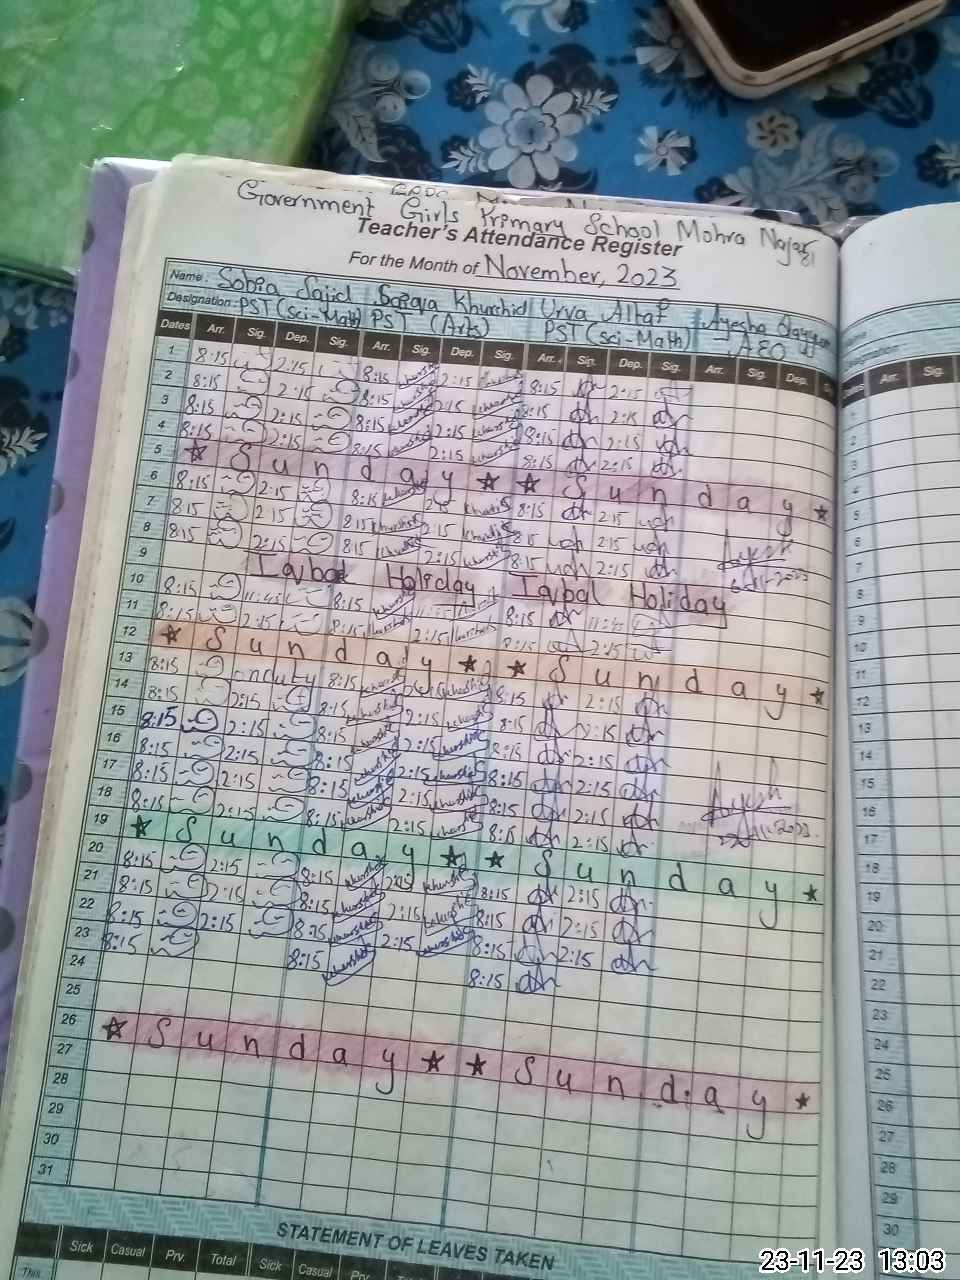 Government Girls Primary School Mohra Najar
Teacher's Attendance Register
For the Month of November, 2023
Name: Sobia Sajid Khurshid Urva Altaf Ayesha
Designation: PST (Sci-Math) PST (Arts) PST (Sci-Math) AEO
Dates Arr. Sig. Dep. Sig. Arr. Sig. Dep. Sig. Arr. Sig. Dep. Sig. Arr. Sig. Dep.
1 8:15 2:15 8:15 2:15 8:15 2:15
2 8:15 2:15 8:15 2:15 8:15 2:15
3 8:15 2:15 8:15 2:15 8:15 2:15
4 8:15 2:15 8:15 2:15 8:15 2:15
5 Sunday Sunday
6 8:15 2:15 8:15 8:15 2:15
7 8:15 2:15 8:15 2:15 8:15 2:15
8 8:15 2:15 8:15 2:15 8:15 2:15
9 Iqbal Holiday Iqbal Holiday
10 8:15 11:45 8:15 8:15 11:45
11 8:15 2:15 8:15 2:15 8:15 2:15
12 Sunday Sunday
13 8:15 onduty 8:15 8:15 2:15
14 8:15 2:15 8:15 2:15 8:15 2:15
15 8:15 2:15 8:15 2:15 8:15 2:15
16 8:15 2:15 8:15 2:15 8:15 2:15
17 8:15 2:15 8:15 2:15 8:15 2:15
18 8:15 2:15 8:15 2:15 8:15 2:15
19 Sunday Sunday
20 8:15 2:15 8:15 2:15 8:15 2:15
21 8:15 2:15 8:15 2:15 8:15 2:15
22 8:15 2:15 8:15 2:15 8:15 2:15
23 8:15 8:15 8:15
24
25
26 Sunday Sunday
27
28
29
30
31
STATEMENT OF LEAVES TAKEN
Sick Casual Prv. Total Sick Casual Prv.
This
Arr. Sig.
1
2
3
4
5
6
7
8
9
10
11
12
13
14
15
16
17
18
19
20
21
22
23
24
25
26
27
28
29
30
23-11-23 13:03